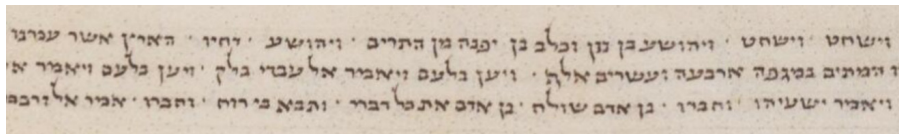 וישחט · וישחט · ויהושע בן נון וכלב בן יפנה מן התרים · ויהושע · וחיו · הארץ אשר עברנו
המתים במגפה ארבעה ועשרים אלף · ויען בלעם ויאמר אל עבדי בלק · ויען בלעם ויאמר
ויאמר ישעיהו · וחברו · בן אדם שולח · בן אדם את כל דברי · ותבא בי רוח · וחברו · אמר אל